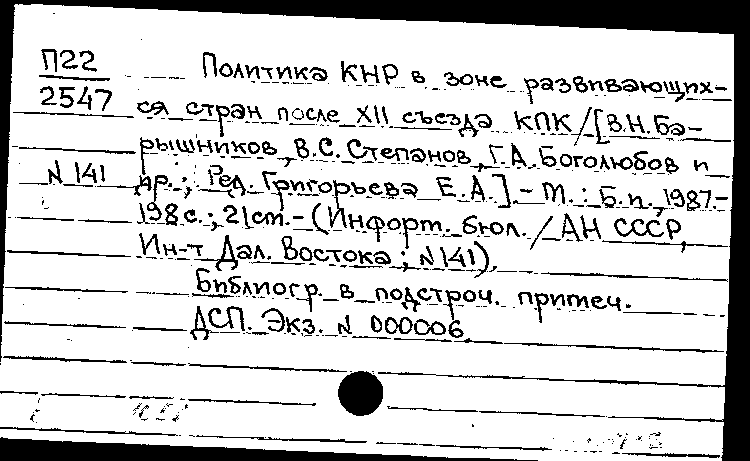 П22
2547
N 141
Политика КНР в зоне развивающих-
ся стран после XII съезда КПК/[В.Н.Ба-
рышников, В.С. Степанов, Г.А. Боголюбов и
др.; Ред. Григорьева Е.А.].- М.: Б.и., 1987.-
198с.; 21см.- (Информ. бюл. / АН СССР,
Ин-т Дал. Востока; N141).
Библиогр. в подстроч. примеч.
ДСП. Экз. N 000006.